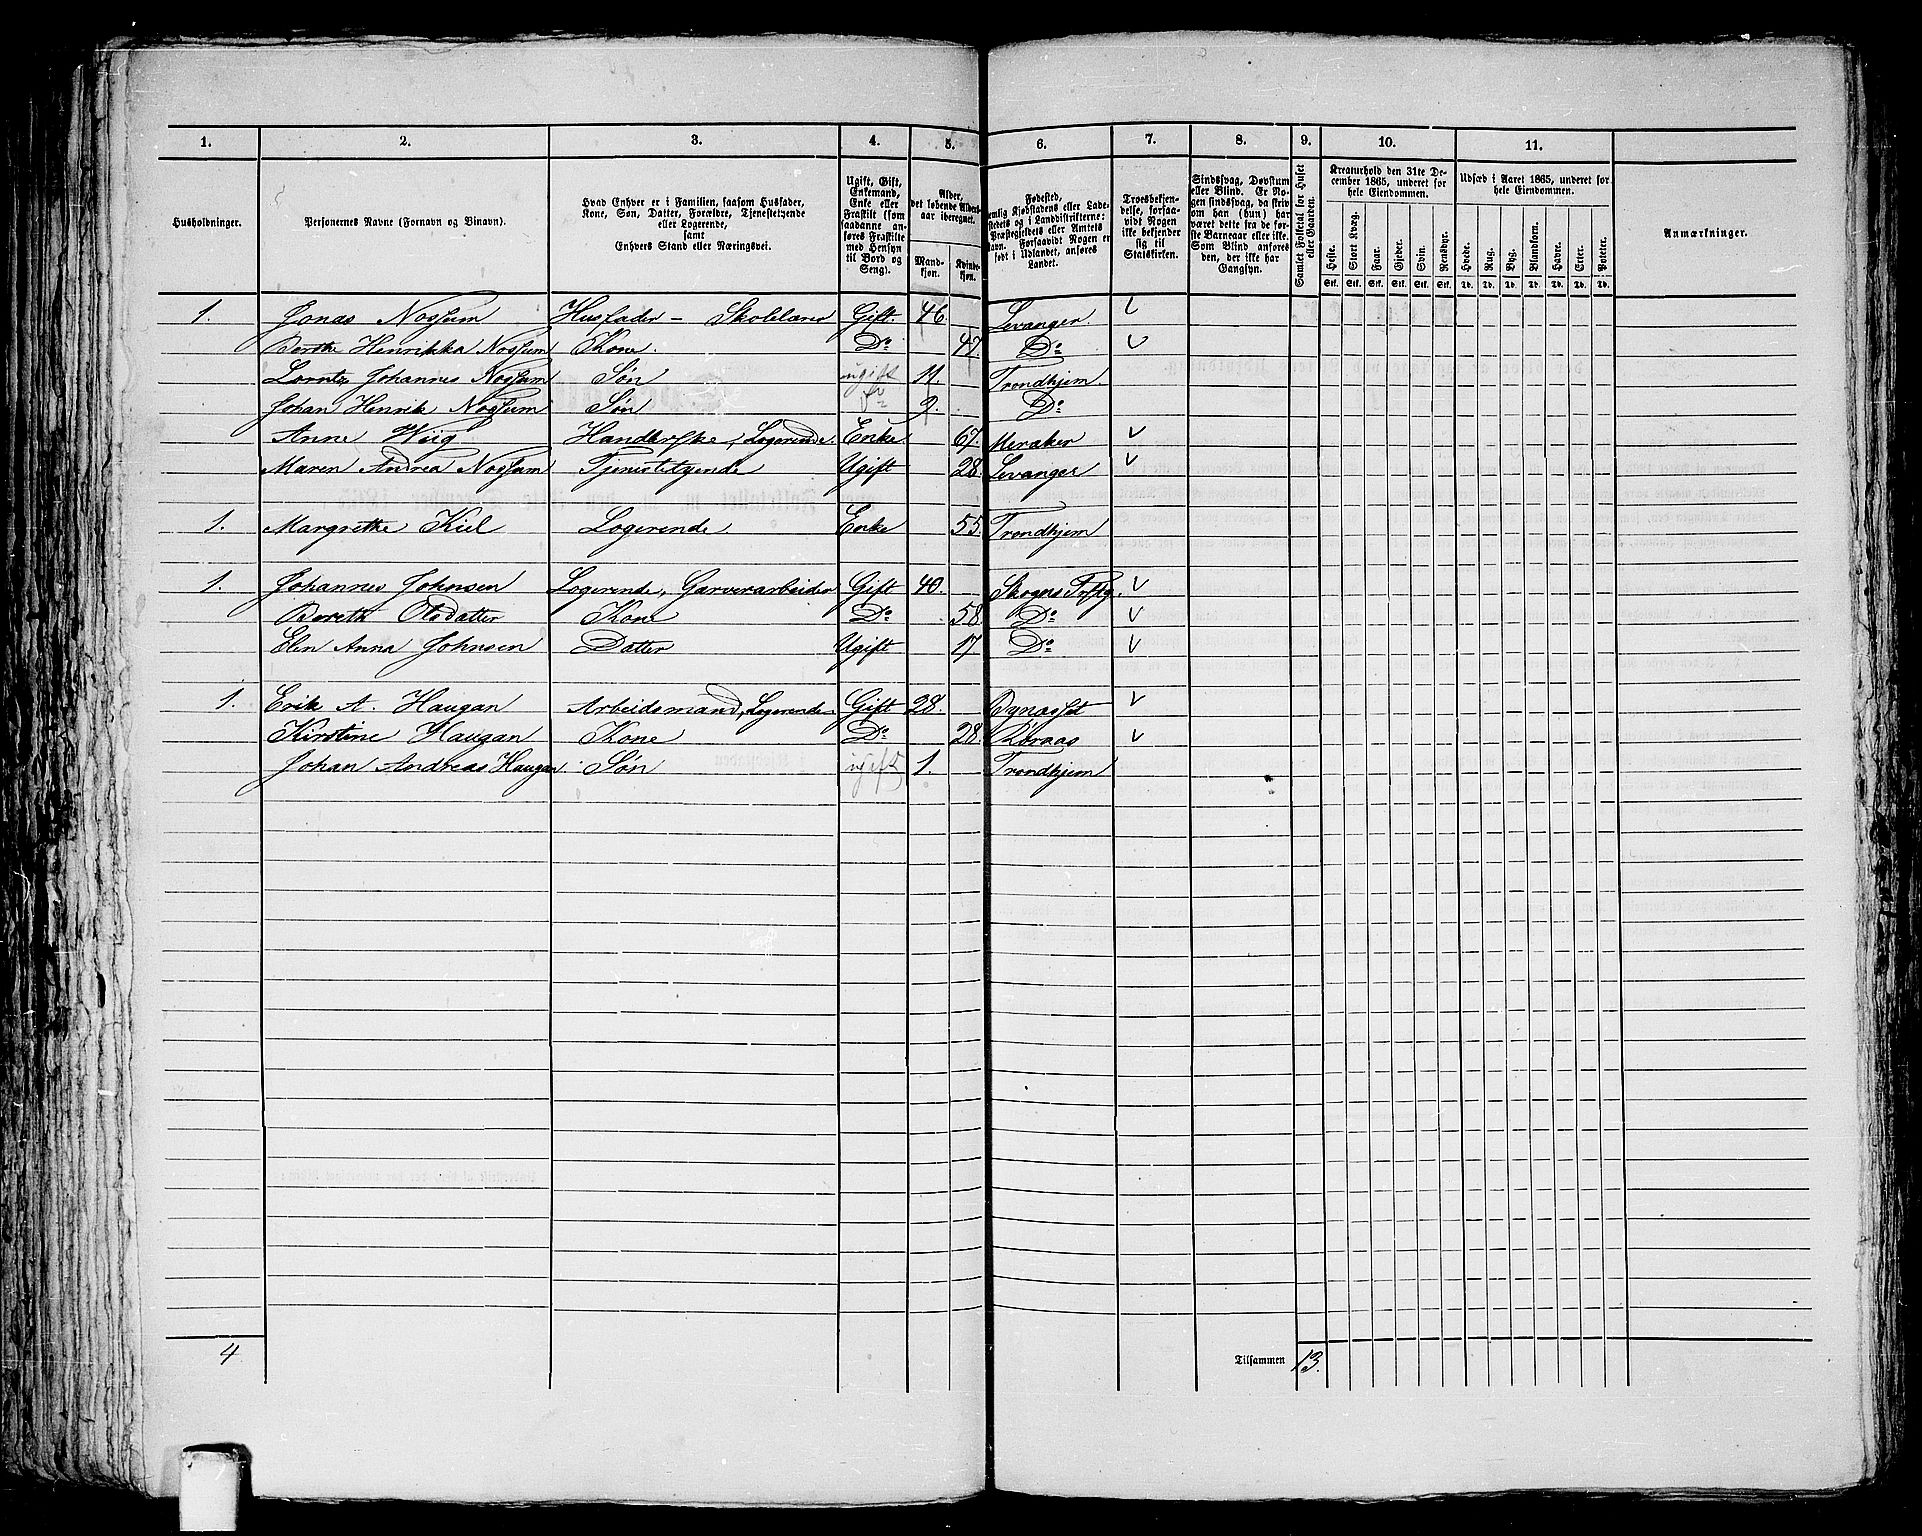 1. 2. 3. 4. 5. 6. 7. 8. 9. 10. 11.
Husholdninger.
Personernes Navne (Fornavn og Tilnavn).
Hvad Enhver er i Familien, saasom Husfader,
Kone, Søn, Datter, Forældre, Tjenestetyende
eller Logerende,
samt
Enhvers Stand eller Næringsvei.
Ugift, Gift,
Enkemand,
Enke eller
Fraskilt (som
saadanne an-
føres Fraskilte
med Hensyn
til Bord og
Seng).
Alder,
det løbende Alders-
aar iberegnet.
Mand-
kjøn.
Kvinde-
kjøn.
Fødested,
Landet.
Troesbekjen-
delse, forsaa-
vidt Nogen
ikke bekjender
sig til
Statskirken.
Sindssvag, Døvstum
eller Blind. Er No-
gen sindssvag, da skriv
om han (hun) har
været dette fra de før-
ste Barneaar eller ikke.
Som Blind anføres
den, der ikke har
Gangsyn.
Samlet Folketal for Huset
eller Gaarden.
Kreaturhold den 31te De-
cember 1865, underet for
hele Eiendommen.
Heste. Stort Kvæg. Faar. Gjeder. Svin. Rensdyr.
Stk. Stk. Stk. Stk. Stk. Stk.
Udsæd i Aaret 1865, underet for
hele Eiendommen.
Hvede. Rug. Byg. Blandkorn. Havre. Erter. Poteter.
Td. Td. Td. Td. Td. Td. Td.
Anmærkninger.
1. Jonas Nossum Husfader – Skolelærer Gift. 46 Levanger.
Berthe Henrikka Nossum Kone. Do 47. Do
Lorntz Johannes Nossum Søn ugift 11. Trondhjem.
Johan Henrik Nossum Søn do 9. Do
Anne Wiig Logerende. Enke. 67. Meraker
Maren Andrea Nossum Tjenestetyende Ugift 28. Levanger
1. Margrethe Kiel Logerende. Enke 55. Trondhjem
1. Johannes Johnsen Logerende, Garverarbeider Gift 40. Skogns
Bereth Olsdatter Kone Do 58. Do
Elen Anna Johnsen Datter Ugift 17 Do
1. Erik A. Haugan Arbeidsmand, Logerende Gift 28. Bynæsset
Kirstine Haugan Kone Do 28. Røraas
Johan Andreas Haugan Søn ugift 1. Trondhjem
4 Tilsammen 13.